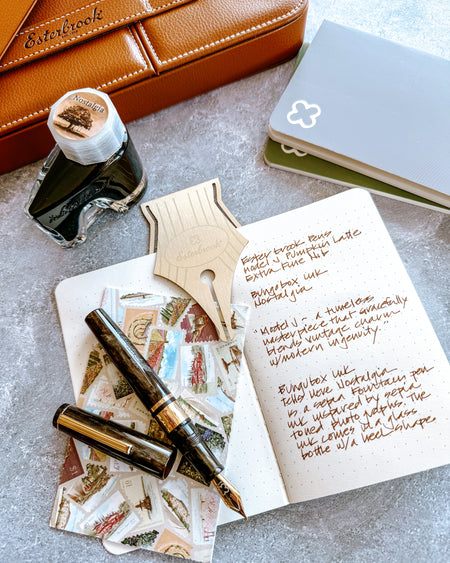 Esterbrook
Nostalgia
Esterbrook
Esterbrook Pens
Model J Pumpkin Latte
Extra Fine Nib
Bungubox ink
Nostalgia
"Model J - a timeless
masterpiece that gracefully
blends vintage charm
w/modern ingenuity."
Bungubox ink
tells here Nostalgia
is a sepia fountain pen
ink inspired by sepia
toned photographs. The
ink comes in a glass
bottle w/a heel shape